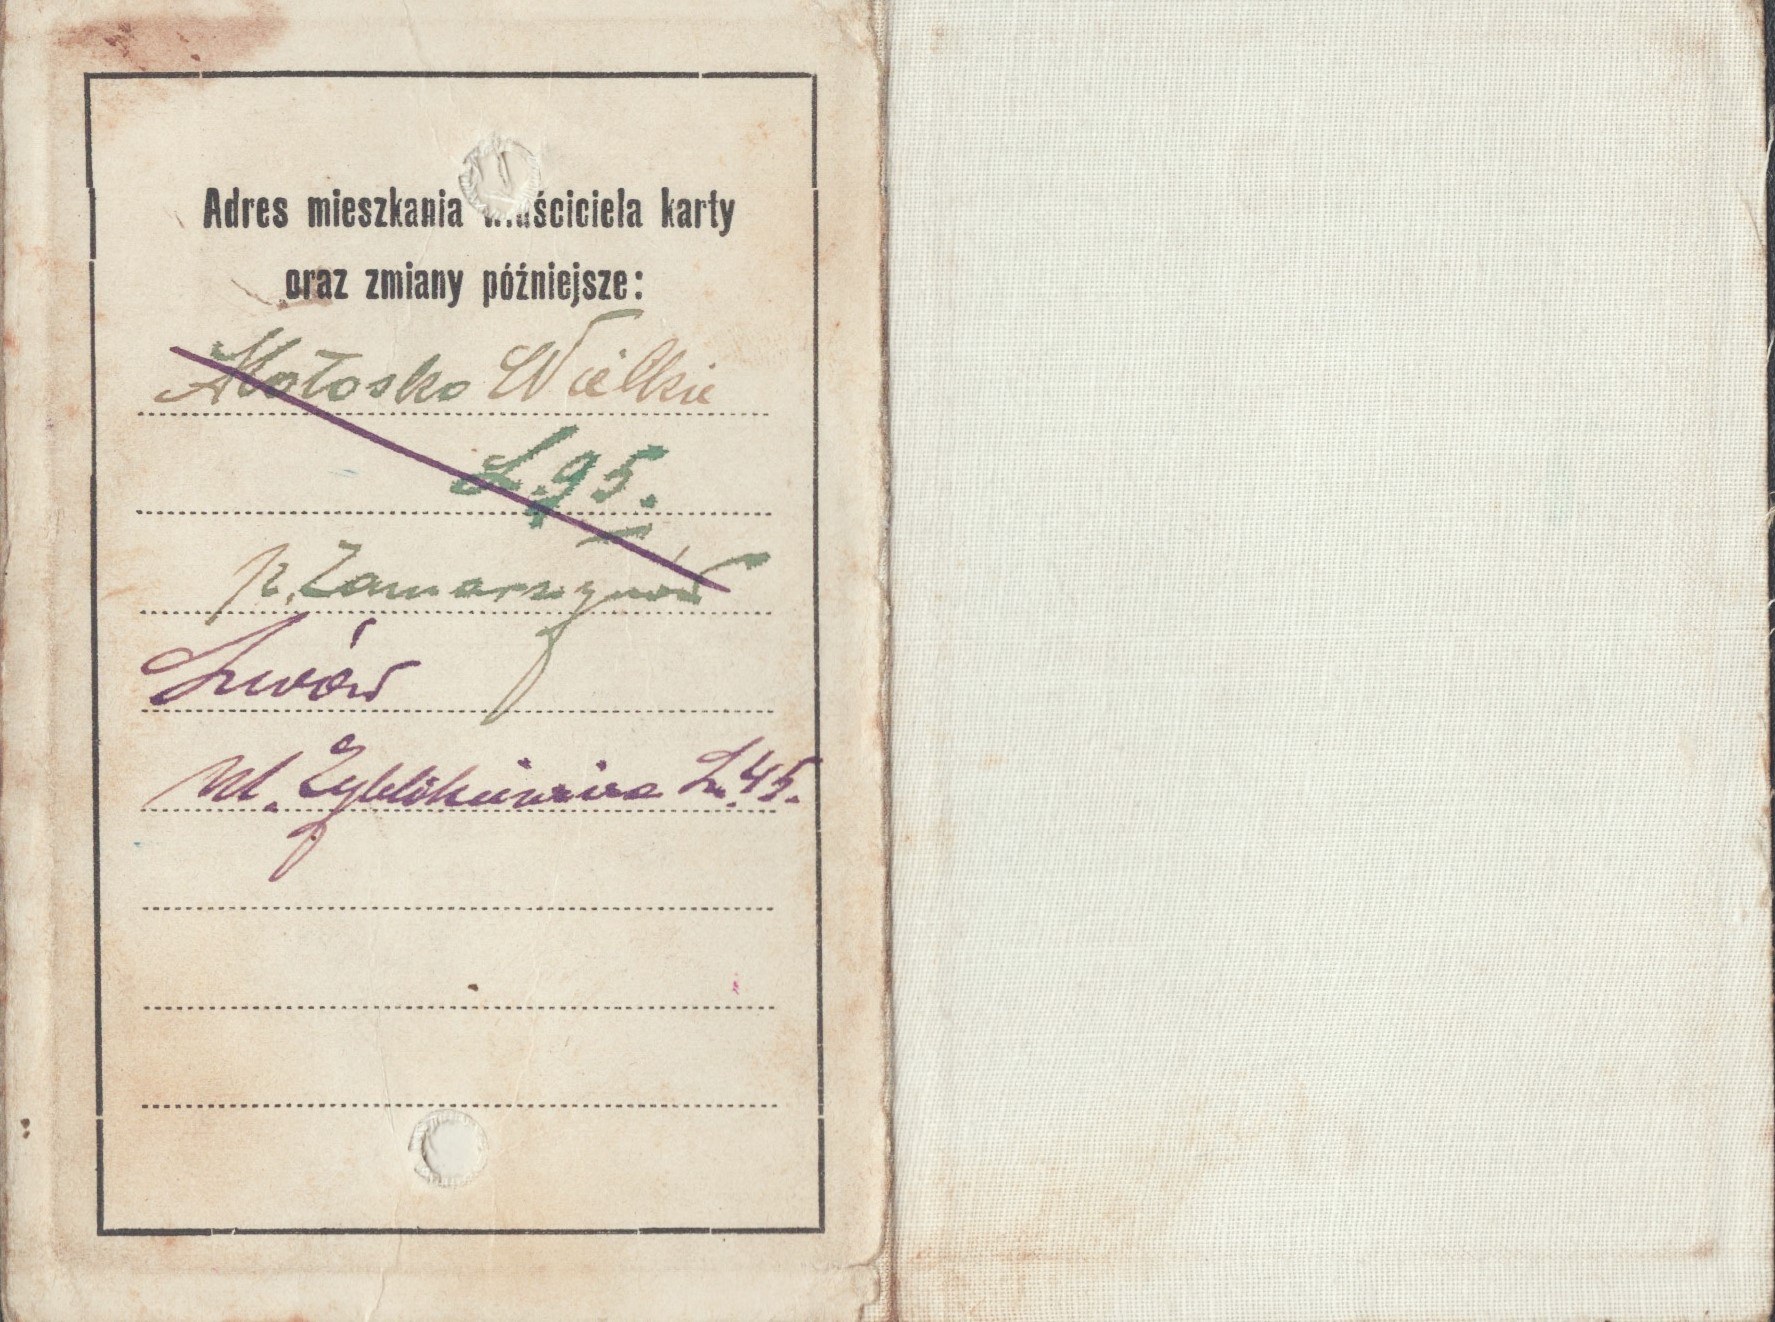 Adres mieszkania właściciela karty
oraz zmiany późniejsze:
Hołosko Wielkie
L. 95.
p. Zamarstynów
Lwów
ul. Zyblikiewicza L. 45.